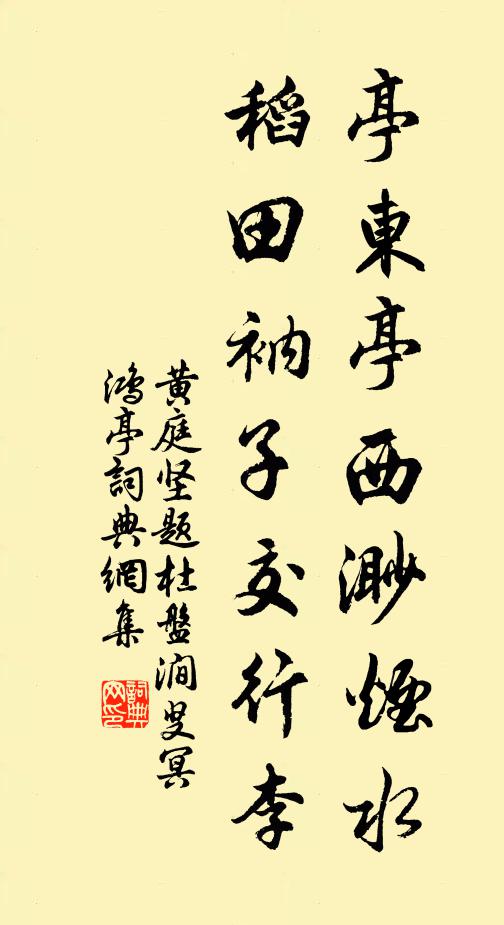 亭東亭西渺煙水
稻田衲子交行李
黄庭坚题杜盤澗叟冥
鴻亭詞典網集
詞典网印